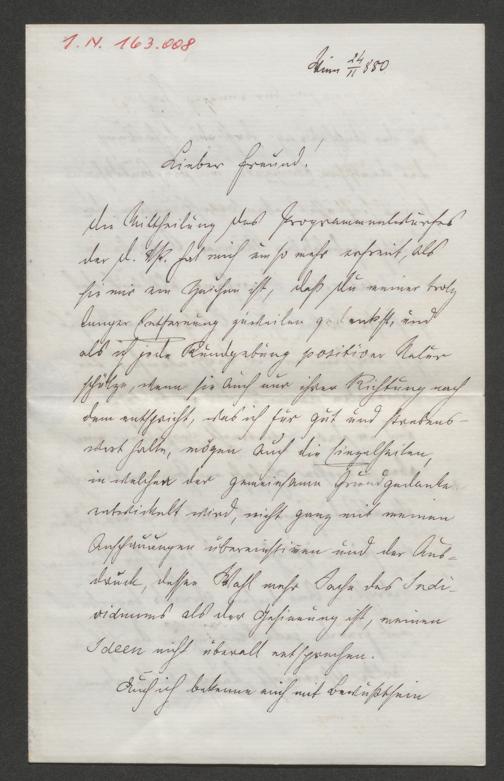 I.N. 163.008
Wien 24/11 880
Lieber Freund!
Die Mittheilung des Programmentwurfes
der d. Vp. hat mich um so mehr erfreut, als
sie mir ein Zeichen ist, daß Du meiner trotz
langer Entfernung zuweilen gedenkst, und
als ich jede Kundgebung positiver Natur
schätze, wenn sie auch nur ihrer Richtung nach
dem entspricht, was ich für gut und strebens-
wert halte, mögen auch die Einzelheiten,
in welchen der gemeinsame Grundgedanke
entwickelt wird, nicht ganz mit meinen
Anschauungen übereinstimmen und der Aus-
druck, dessen Wahl mehr Sache des Indi-
viduums als der Gesinnung ist, meinen
Ideen nicht überall entsprechen.
Auch ich bekenne mich mit Bewußtsein